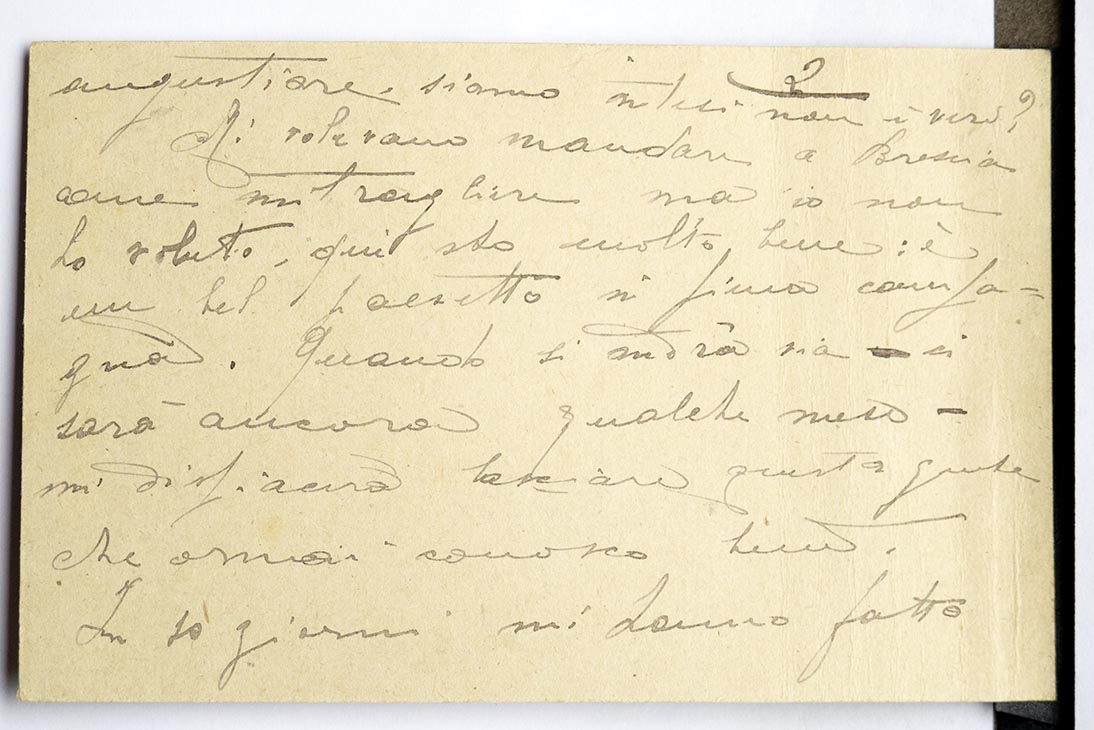 2
angustiare. siamo intesi non è vero?
Mi volevano mandare a Brescia
come mitragliere ma io non
ho voluto, qui sto molto bene: è
un bel paesetto in piena campa-
gna. Quando si andrà via - ci
sarà ancora qualche mese -
mi dispiacerà lasciare questa gente
che ormai conosco bene.
In 10 giorni mi hanno fatto